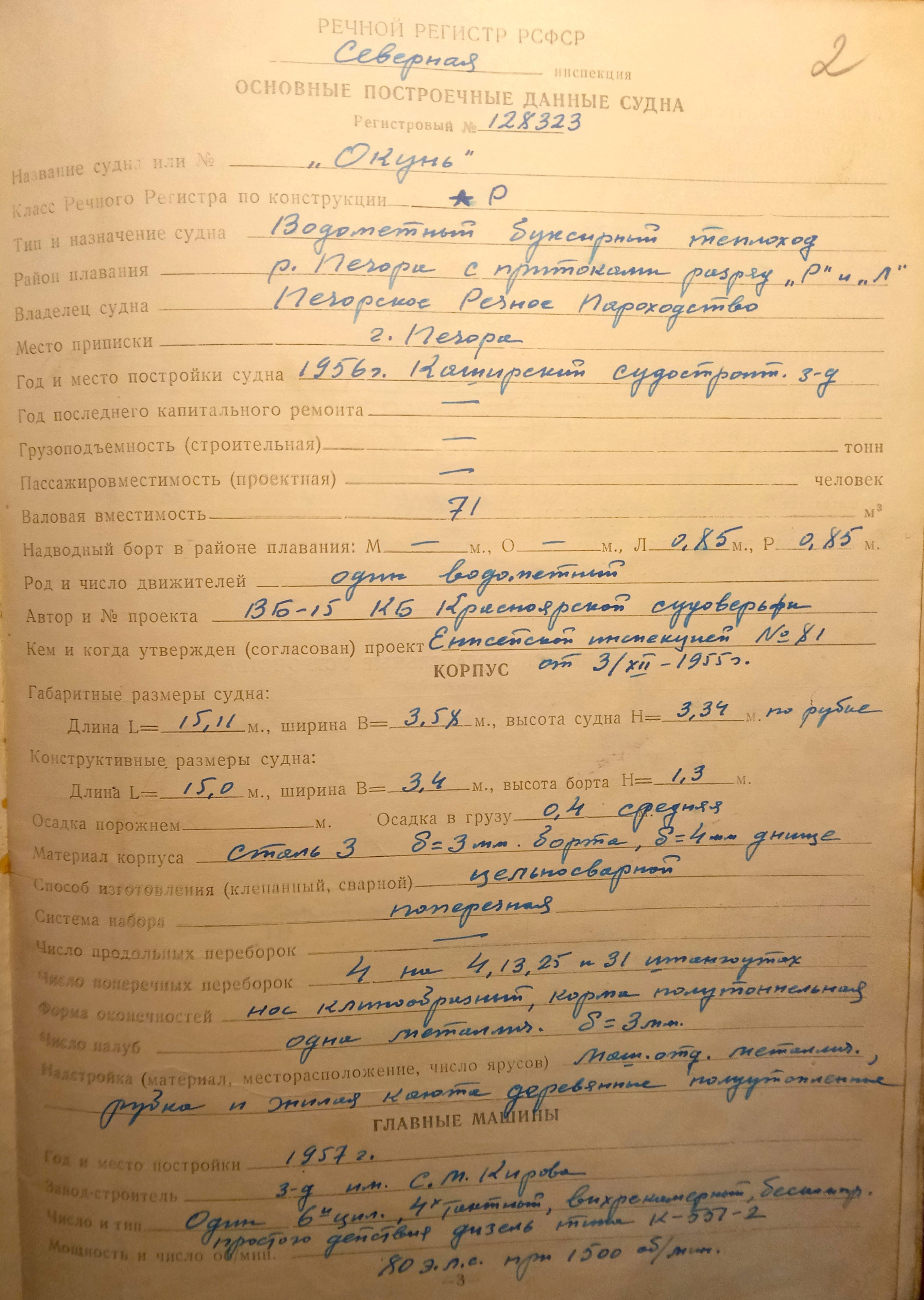 2
РЕЧНОЙ РЕГИСТР РСФСР
Северная инспекция
ОСНОВНЫЕ ПОСТРОЕЧНЫЕ ДАННЫЕ СУДНА
Регистровый № 128323
Название судна или № „Окунь"
Класс Речного Регистра по конструкции ★ Р
Тип и назначение судна Водометный буксирный теплоход
Район плавания р. Печора с притоками разряду „Р" и „Л"
Владелец судна Печорское Речное Пароходство
Место приписки г. Печора
Год и место постройки судна 1956г. Каширский судостроит. з-д
Год последнего капитального ремонта —
Грузоподъемность (строительная) — тонн
Пассажировместимость (проектная) — человек
Валовая вместимость 71 м³
Надводный борт в районе плавания: М — м., О — м., Л 0,85 м., Р 0,85 м.
Род и число движителей один водометный
Автор и № проекта ВБ-15 КБ Красноярской судоверфи
Кем и когда утвержден (согласован) проект Енисейской инспекцией № 81
КОРПУС от 3/XII-1955г.
Габаритные размеры судна:
Длина L= 15,11 м., ширина В= 3,58 м., высота судна Н= 3,34 м. по рубке
Конструктивные размеры судна:
Длина L= 15,0 м., ширина В= 3,4 м., высота борта Н= 1,3 м.
Осадка порожнем м. Осадка в грузу 0,4 средняя
Материал корпуса сталь 3 δ=3мм. борта, δ=4мм днище
Способ изготовления (клепанный, сварной) цельносварной
Система набора поперечная
Число продольных переборок —
Число поперечных переборок 4 на 4,13,25 и 31 шпангоутах
Форма оконечностей нос клинообразный, корма полутоннельная
Число палуб одна металлич. δ=3мм.
Надстройка (материал, месторасположение, число ярусов) маш.отд. металлич.,
рубка и жилая каюта деревянные полуутопленные
ГЛАВНЫЕ МАШИНЫ
Год и место постройки 1957г.
Завод-строитель з-д им. С.М. Кирова
Число и тип Один 6и цил., 4х тактный, вихрекамерный, бескомпр.
простого действия дизель типа К-557-2
Мощность и число об/мин. 80 э.л.с. при 1500 об/мин.
–3–